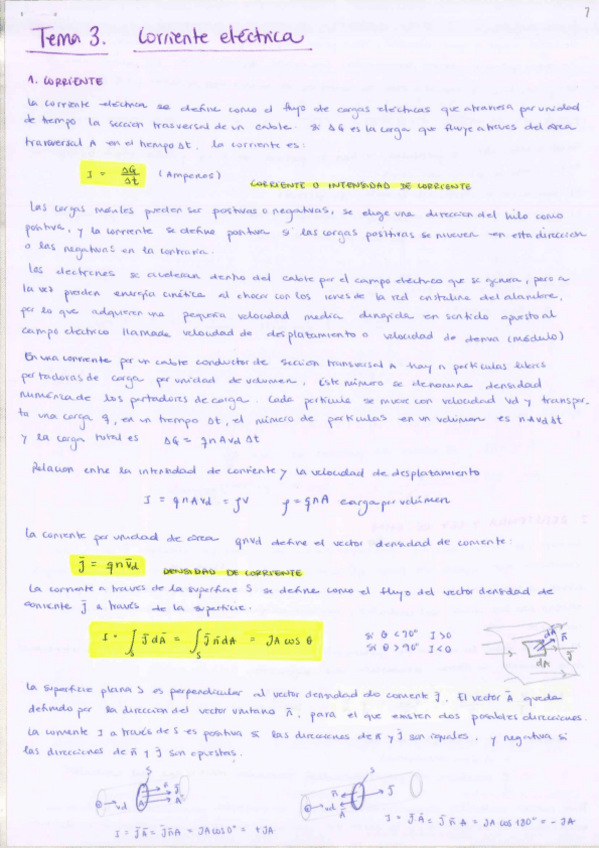 7
Tema 3. Corriente eléctrica
1. CORRIENTE
La corriente eléctrica se define como el flujo de cargas eléctricas que atraviesa por unidad
de tiempo la sección trasversal de un cable. Si ΔQ es la carga que fluye a través del área
transversal A en el tiempo Δt, la corriente es:
I = ΔQ/Δt (Amperios)
CORRIENTE O INTENSIDAD DE CORRIENTE
Las cargas móviles pueden ser positivas o negativas, se elige una dirección del hilo como
positiva, y la corriente se define positiva si las cargas positivas se mueven en esta dirección
o las negativas en la contraria.
Los electrones se aceleran dentro del cable por el campo eléctrico que se genera, pero a
la vez pierden energía cinética al chocar con los iones de la red cristalina del alambre,
por lo que adquieren una pequeña velocidad media dirigida en sentido opuesto al
campo eléctrico llamada velocidad de desplazamiento o velocidad de deriva (módulo)
En una corriente por un cable conductor de sección transversal A hay n partículas libres
portadoras de carga por unidad de volumen, este número se denomina densidad
numérica de los portadores de carga. Cada partícula se mueve con velocidad Vd y transpor-
ta una carga q, en un tiempo Δt, el número de partículas en un volumen es nAvdΔt
y la carga total es ΔQ = qnAvdΔt
Relación entre la intensidad de corriente y la velocidad de desplazamiento
I = qnAvd = ρv ρ = qnA carga por volumen
La corriente por unidad de área qnvd define el vector densidad de corriente:
j̄ = qnv̄d DENSIDAD DE CORRIENTE
La corriente a través de la superficie S se define como el flujo del vector densidad de
corriente j̄ a través de la superficie.
I = ∫s J̄dĀ = ∫s J̄n̄dA = JA cos θ
Si θ < 90° I>0
Si θ > 90° I<0
dĀ n̄ J̄ dA
La superficie plana S es perpendicular al vector densidad de corriente J̄. El vector Ā queda
definido por la dirección del vector unitario n̄, para el que existen dos posibles direcciones.
La corriente I a través de S es positiva si las direcciones de n̄ y J̄ son iguales, y negativa si
las direcciones de n̄ y J̄ son opuestas.
S vd n̄ J̄ A Ā
S vd n̄ J̄ Ā
I = J̄Ā = J̄n̄A = JA cos 0° = +JA
I = J̄Ā = J̄n̄A = JA cos 180° = -JA